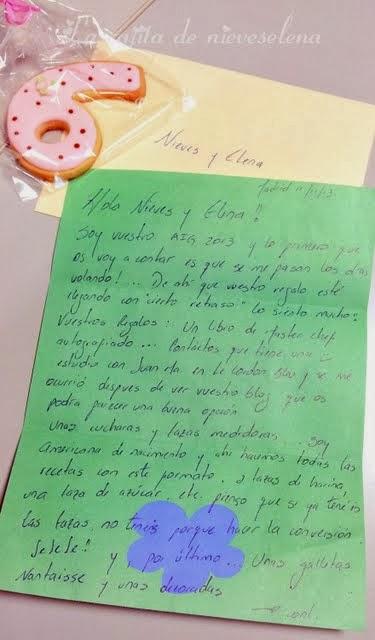 La cajita de nieveselena
Nieves y Elena
Madrid 11/11/13
Hola Nieves y Elena!!
Soy vuestro AIG 2013 y lo primero que
os voy a contar es que se me pasan los días
volando!... De ahí que vuestro regalo esté
llegando con "cierto retraso" Lo siento mucho!!
Vuestros Regalos: Un libro de Master chef
autografiado... Contactos que tiene una
estudió con Juan en Le Cordon Bleu y se me
ocurrió despues de ver vuestro blog que os
podía parecer una buena opción
Unas cucharas y tazas medidoras... Soy
Americana de nacimiento y ahí hacemos todas las
recetas con este formato. 2 tazas de harina,
una taza de azúcar, etc. pienso que si ya tenéis
las tazas, no tenéis porque hacer la conversión.
JeJeJe!!
y, por último... Unas galletas
Nantaisse y unas decoradas